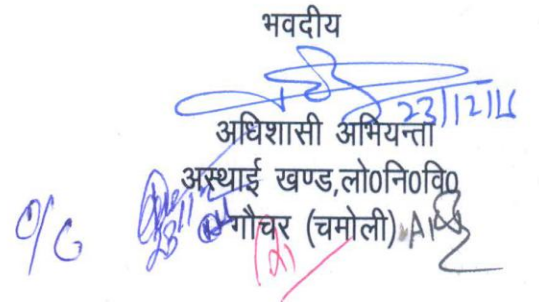 भवदीय
23/12/16
अधिशासी अभियन्ता
अस्थाई खण्ड,लो0नि0वि0
गौचर (चमोली)
O/C